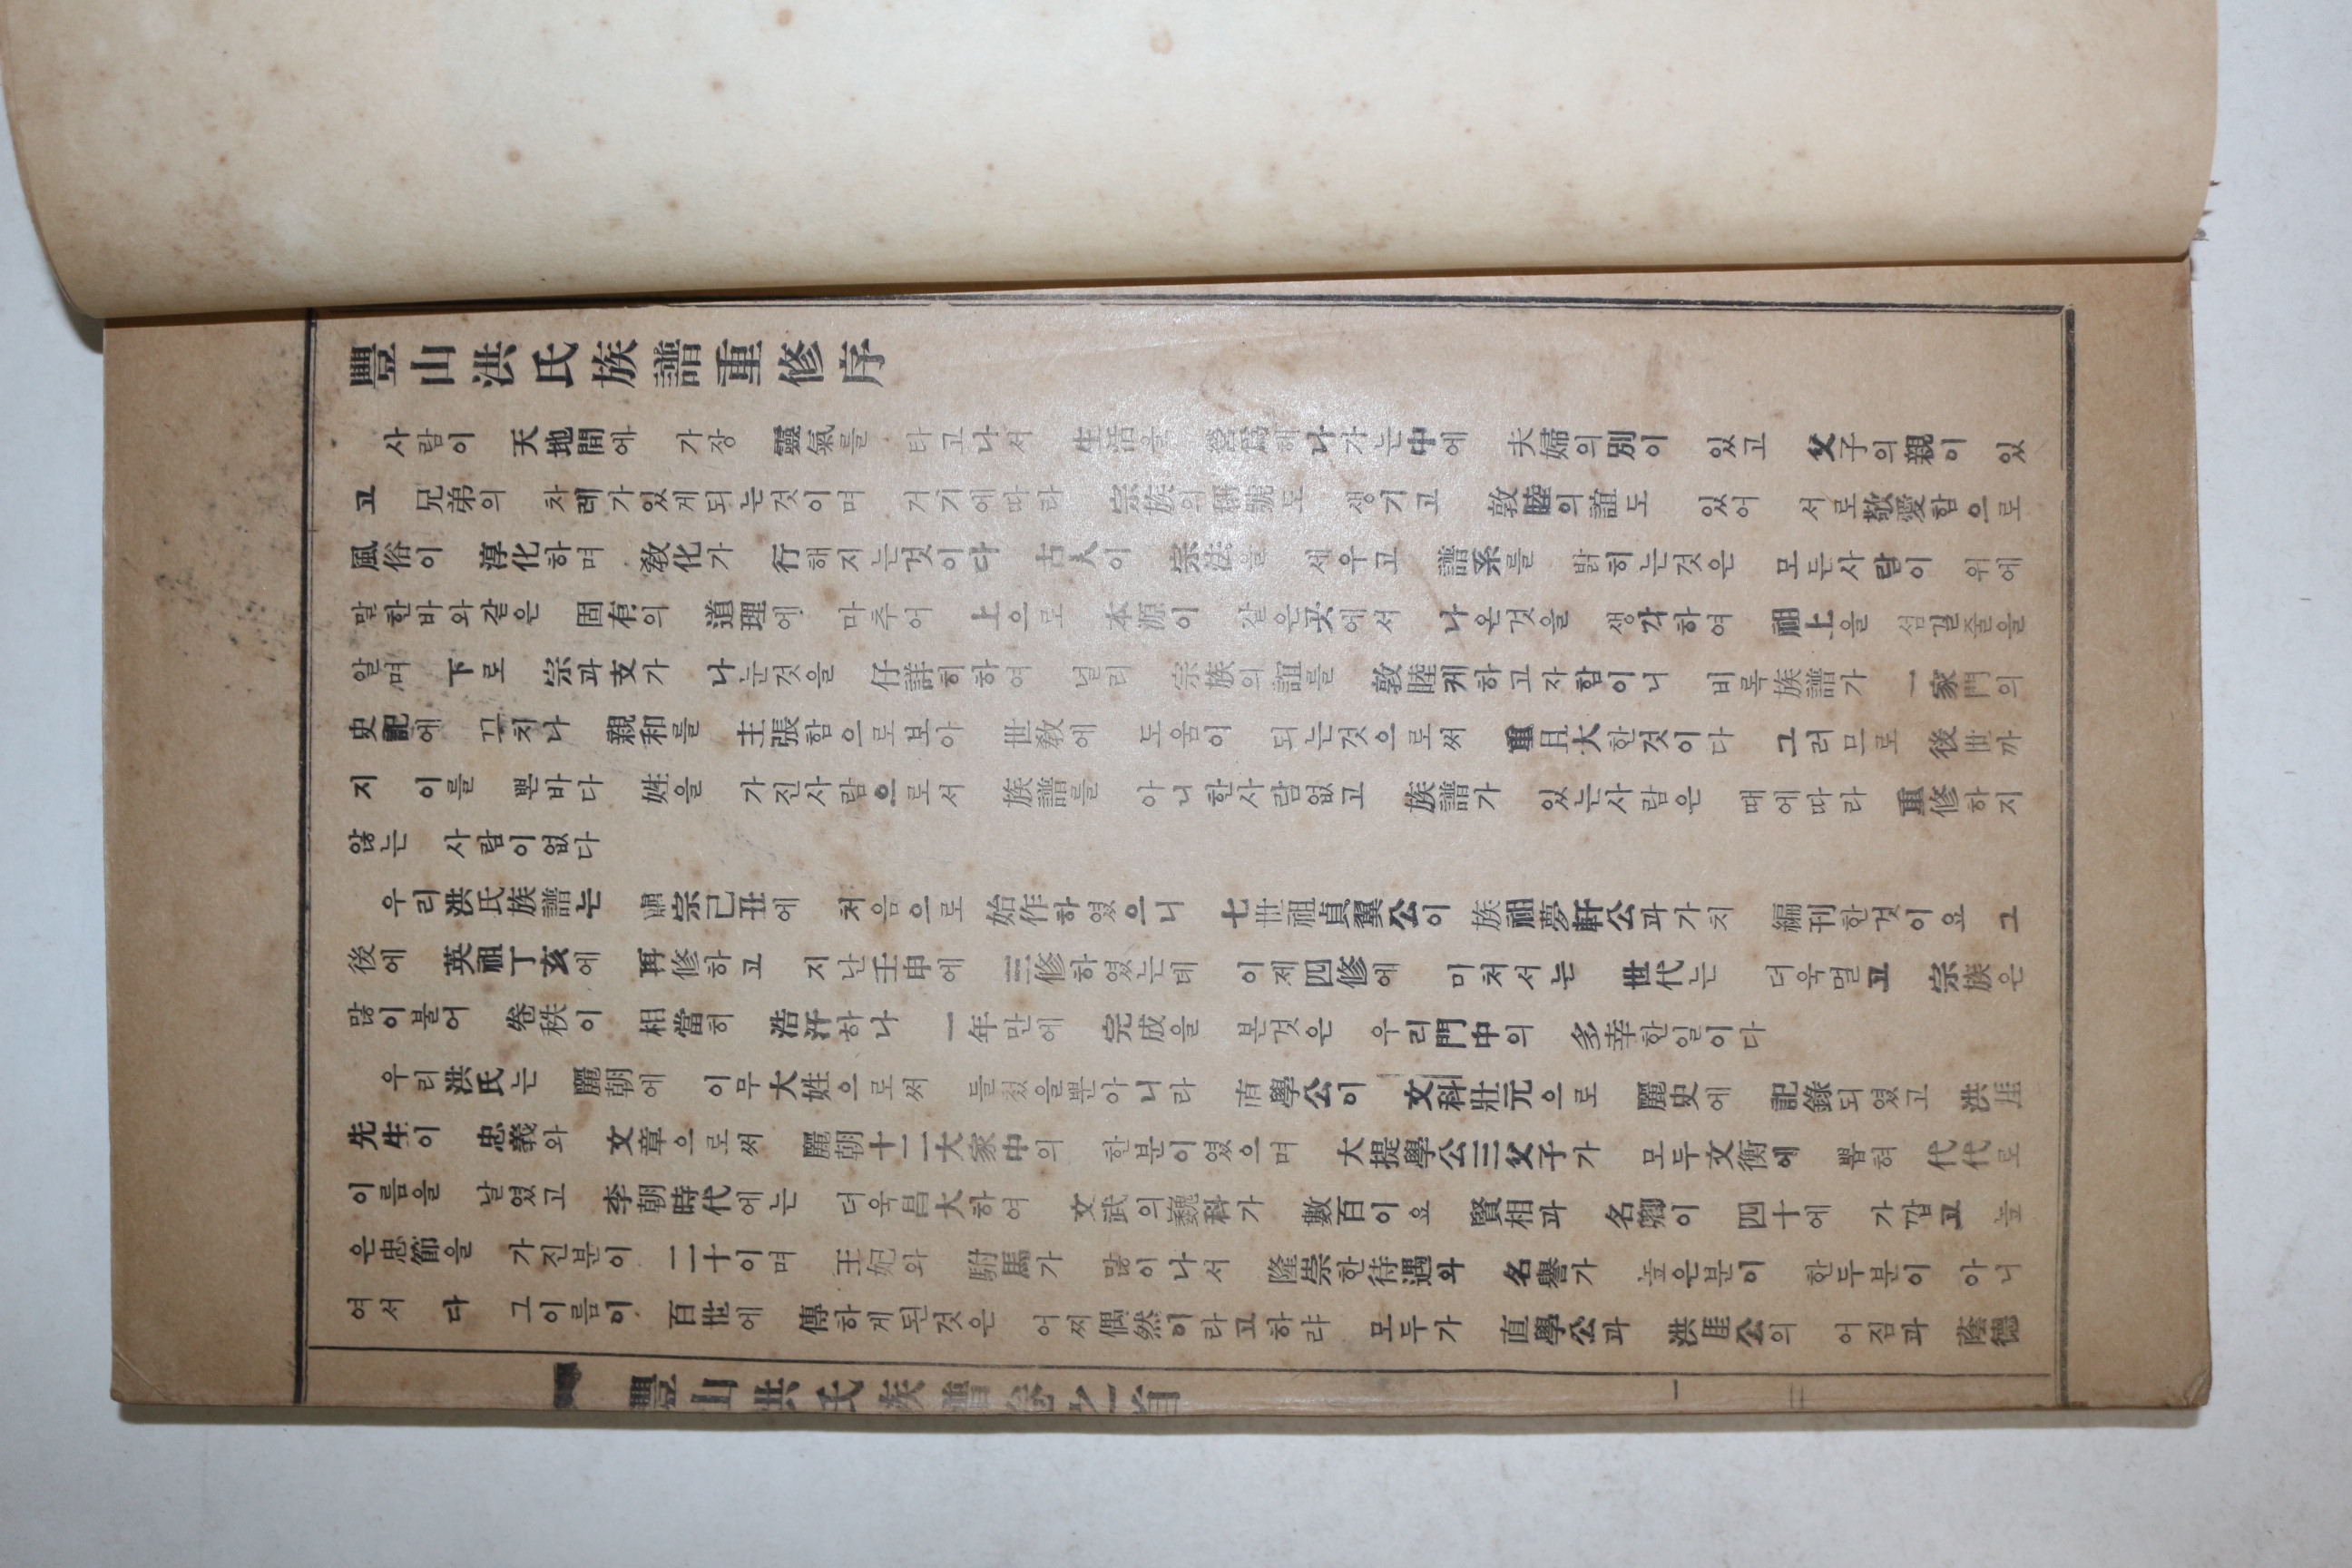 豐山洪氏族譜重修序
사람이 天地間에 가장 靈氣를 타고나서 生活을 營爲해나가는中에 夫婦의別이 있고 父子의親이 있
고 兄弟의 차례가있게되는것이며 거기에따라 宗族의稱號도 생기고 敦睦의誼도 있어 서로敬愛함으로
風俗이 淳化하며 敎化가 行해지는것이다 古人이 宗法을 세우고 譜系를 밝히는것은 모든사람이 위에
말한바와같은 固有의 道理에 마추어 上으로 本源이 같은곳에서 나온것을 생각하여 祖上을 섬길줄을
알며 下로 宗과支가 나눈것을 仔詳히하여 널리 宗族의誼를 敦睦케하고자함이니 비록族譜가 一家門의
史記에 끄치나 親和를 主張함으로보아 世敎에 도움이 되는것으로써 重且大한것이다 그러므로 後世까
지 이를 뿐바다 姓을 가진사람으로서 族譜를 아니한사람없고 族譜가 있는사람은 때에따라 重修하지
않는 사람이없다
우리洪氏族譜는 肅宗己丑에 처음으로 始作하였으니 七世祖貞翼公이 族祖夢軒公과가치 編刊한것이요 그
後에 英祖丁亥에 再修하고 지난壬申에 三修하였는데 이제四修에 미처서는 世代는 더욱멀고 宗族은
많이불어 卷秩이 相當히 浩汗하나 一年만에 完成을 본것은 우리門中의 多幸한일이다
우리洪氏는 麗朝에 이무大姓으로써 들렀을뿐아니라 直學公이 文科壯元으로 麗史에 記錄되였고 洪崖
先生이 忠義와 文章으로써 麗朝十二大家中의 한분이였으며 大提學公三父子가 모두文衡에 뽑혀 代代로
이름을 날였고 李朝時代에는 더욱昌大하여 文武의巍科가 數百이요 賢相과 名卿이 四十에 가깝고 높
은忠節을 가진분이 二十이며 王妃와 駙馬가 많이나서 隆崇한待遇와 名譽가 높은분이 한두분이 아니
여서 다 그이름이 百世에 傳하게된것은 어찌偶然이라고하랴 모두가 直學公과 洪崖公의 어짐과 蔭德
豐山洪氏族譜卷之首 一